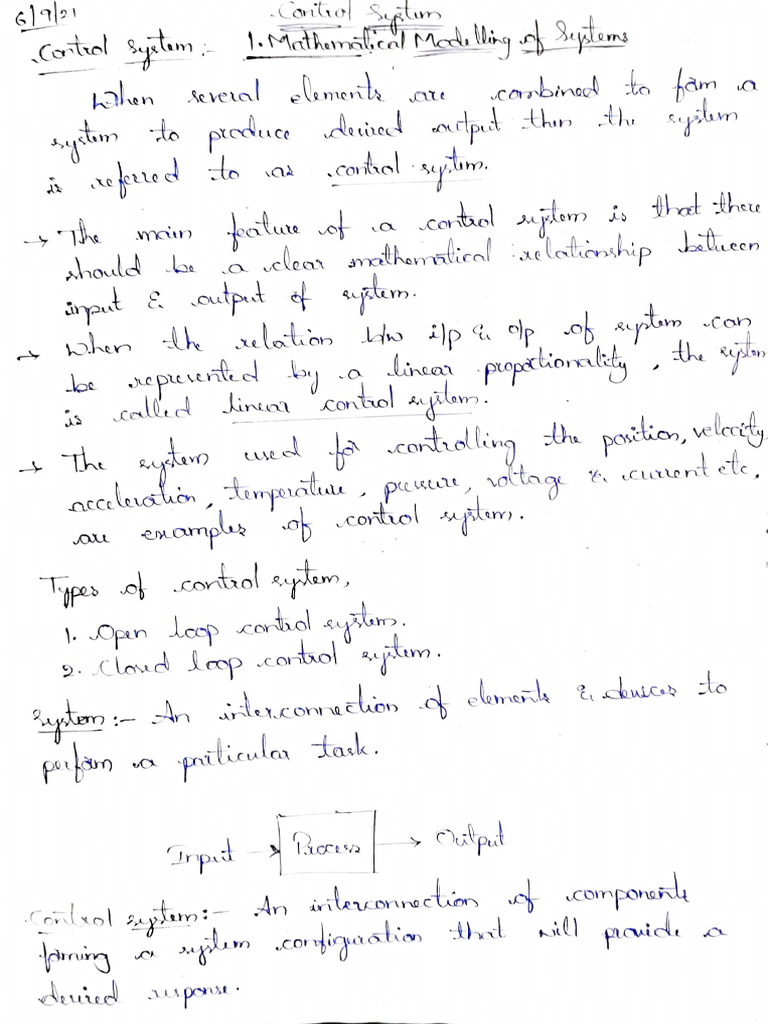 6/9/21
Control System
Control System:- 1. Mathematical Modelling of Systems
When several elements are combined to form a
system to produce desired output then the system
is referred to as control system.
→ The main feature of a control system is that there
should be a clear mathematical relationship between
input & output of system.
→ When the relation b/w i/p & o/p of system can
be represented by a linear proportionality, the system
is called linear control system.
→ The system used for controlling the position, velocity,
acceleration, temperature, pressure, voltage & current etc,
are examples of control system.
Types of control system,
1. Open loop control system.
2. Closed loop control system.
System:- An interconnection of elements & devices to
perform a particular task.
Input → Process → Output
Control system:- An interconnection of components
forming a system configuration that will provide a
desired response.